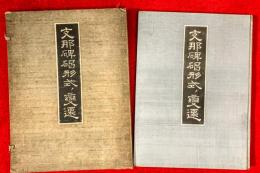 支那碑碣形式ノ變遷
支那碑碣形式ノ變遷